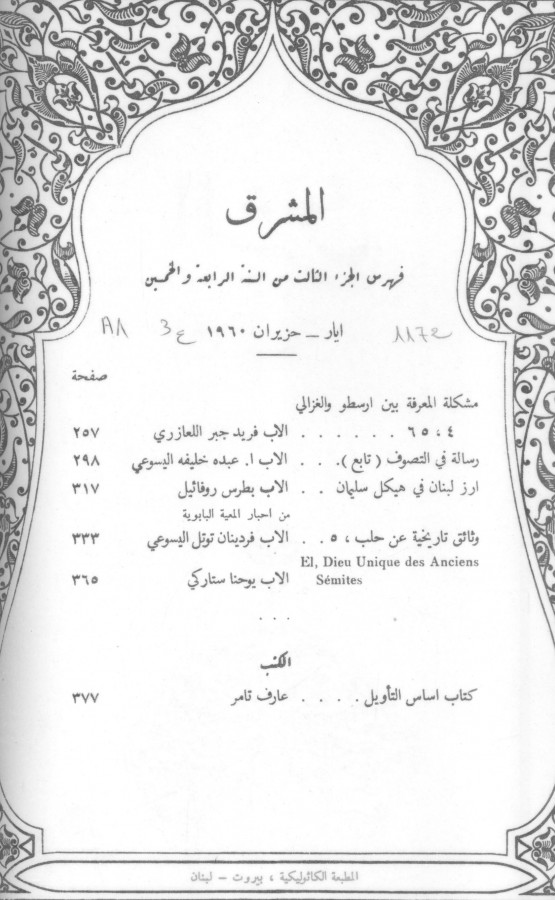 المشرق
فهرس الجزء الثالث من السنة الرابعة والخمسين
ايار – حزيران ١٩٦٠
A1 3ع 1172
صفحة
مشكلة المعرفة بين ارسطو والغزالي
٤ ، ٥ ٦ . . . . . . الاب فريد جبر اللعازري ٢٥٧
رسالة في التصوف ( تابع ) . . . الاب ا. عبده خليفه اليسوعي ٢٩٨
ارز لبنان في هيكل سليمان . . الاب بطرس روفائيل ٣١٧
من احبار المعية البابوية
وثائق تاريخية عن حلب ، ٥ . . الاب فردينان توتل اليسوعي ٣٣٣
El, Dieu Unique des Anciens
Sémites الاب يوحنا ستاركي ٣٦٥
. . .
الكتب
كتاب اساس التأويل . . . . عارف تامر ٣٧٧
المطبعة الكاثوليكية ، بيروت – لبنان